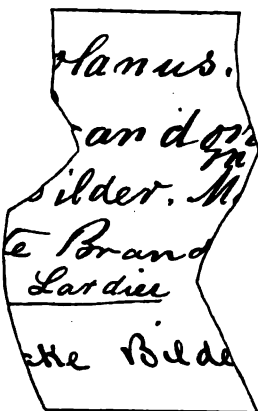 olanus.
andom
m
Bilder. M
te Brand
Lardier
cke Bilde